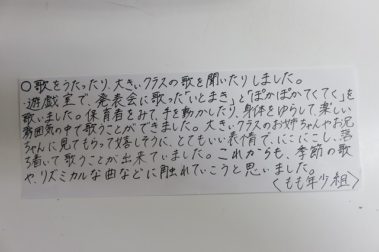 ○歌をうたったり、大きいクラスの歌を聞いたりしました。
・遊戯室で、発表会に歌った「いとまき」と「ぽかぽかてくてく」を
歌いました。保育者をみて、手を動かしたり、身体をゆらして、楽しい
雰囲気の中で歌うことができました。大きいクラスのお姉ちゃんやお兄
ちゃんに見てもらって嬉しそうに、とてもいい表情で、にこにこし、落
ち着いて歌うことが出来ていました。これからも、季節の歌
や、リズミカルな曲などに触れていこうと思いました。
〈もも年少組〉